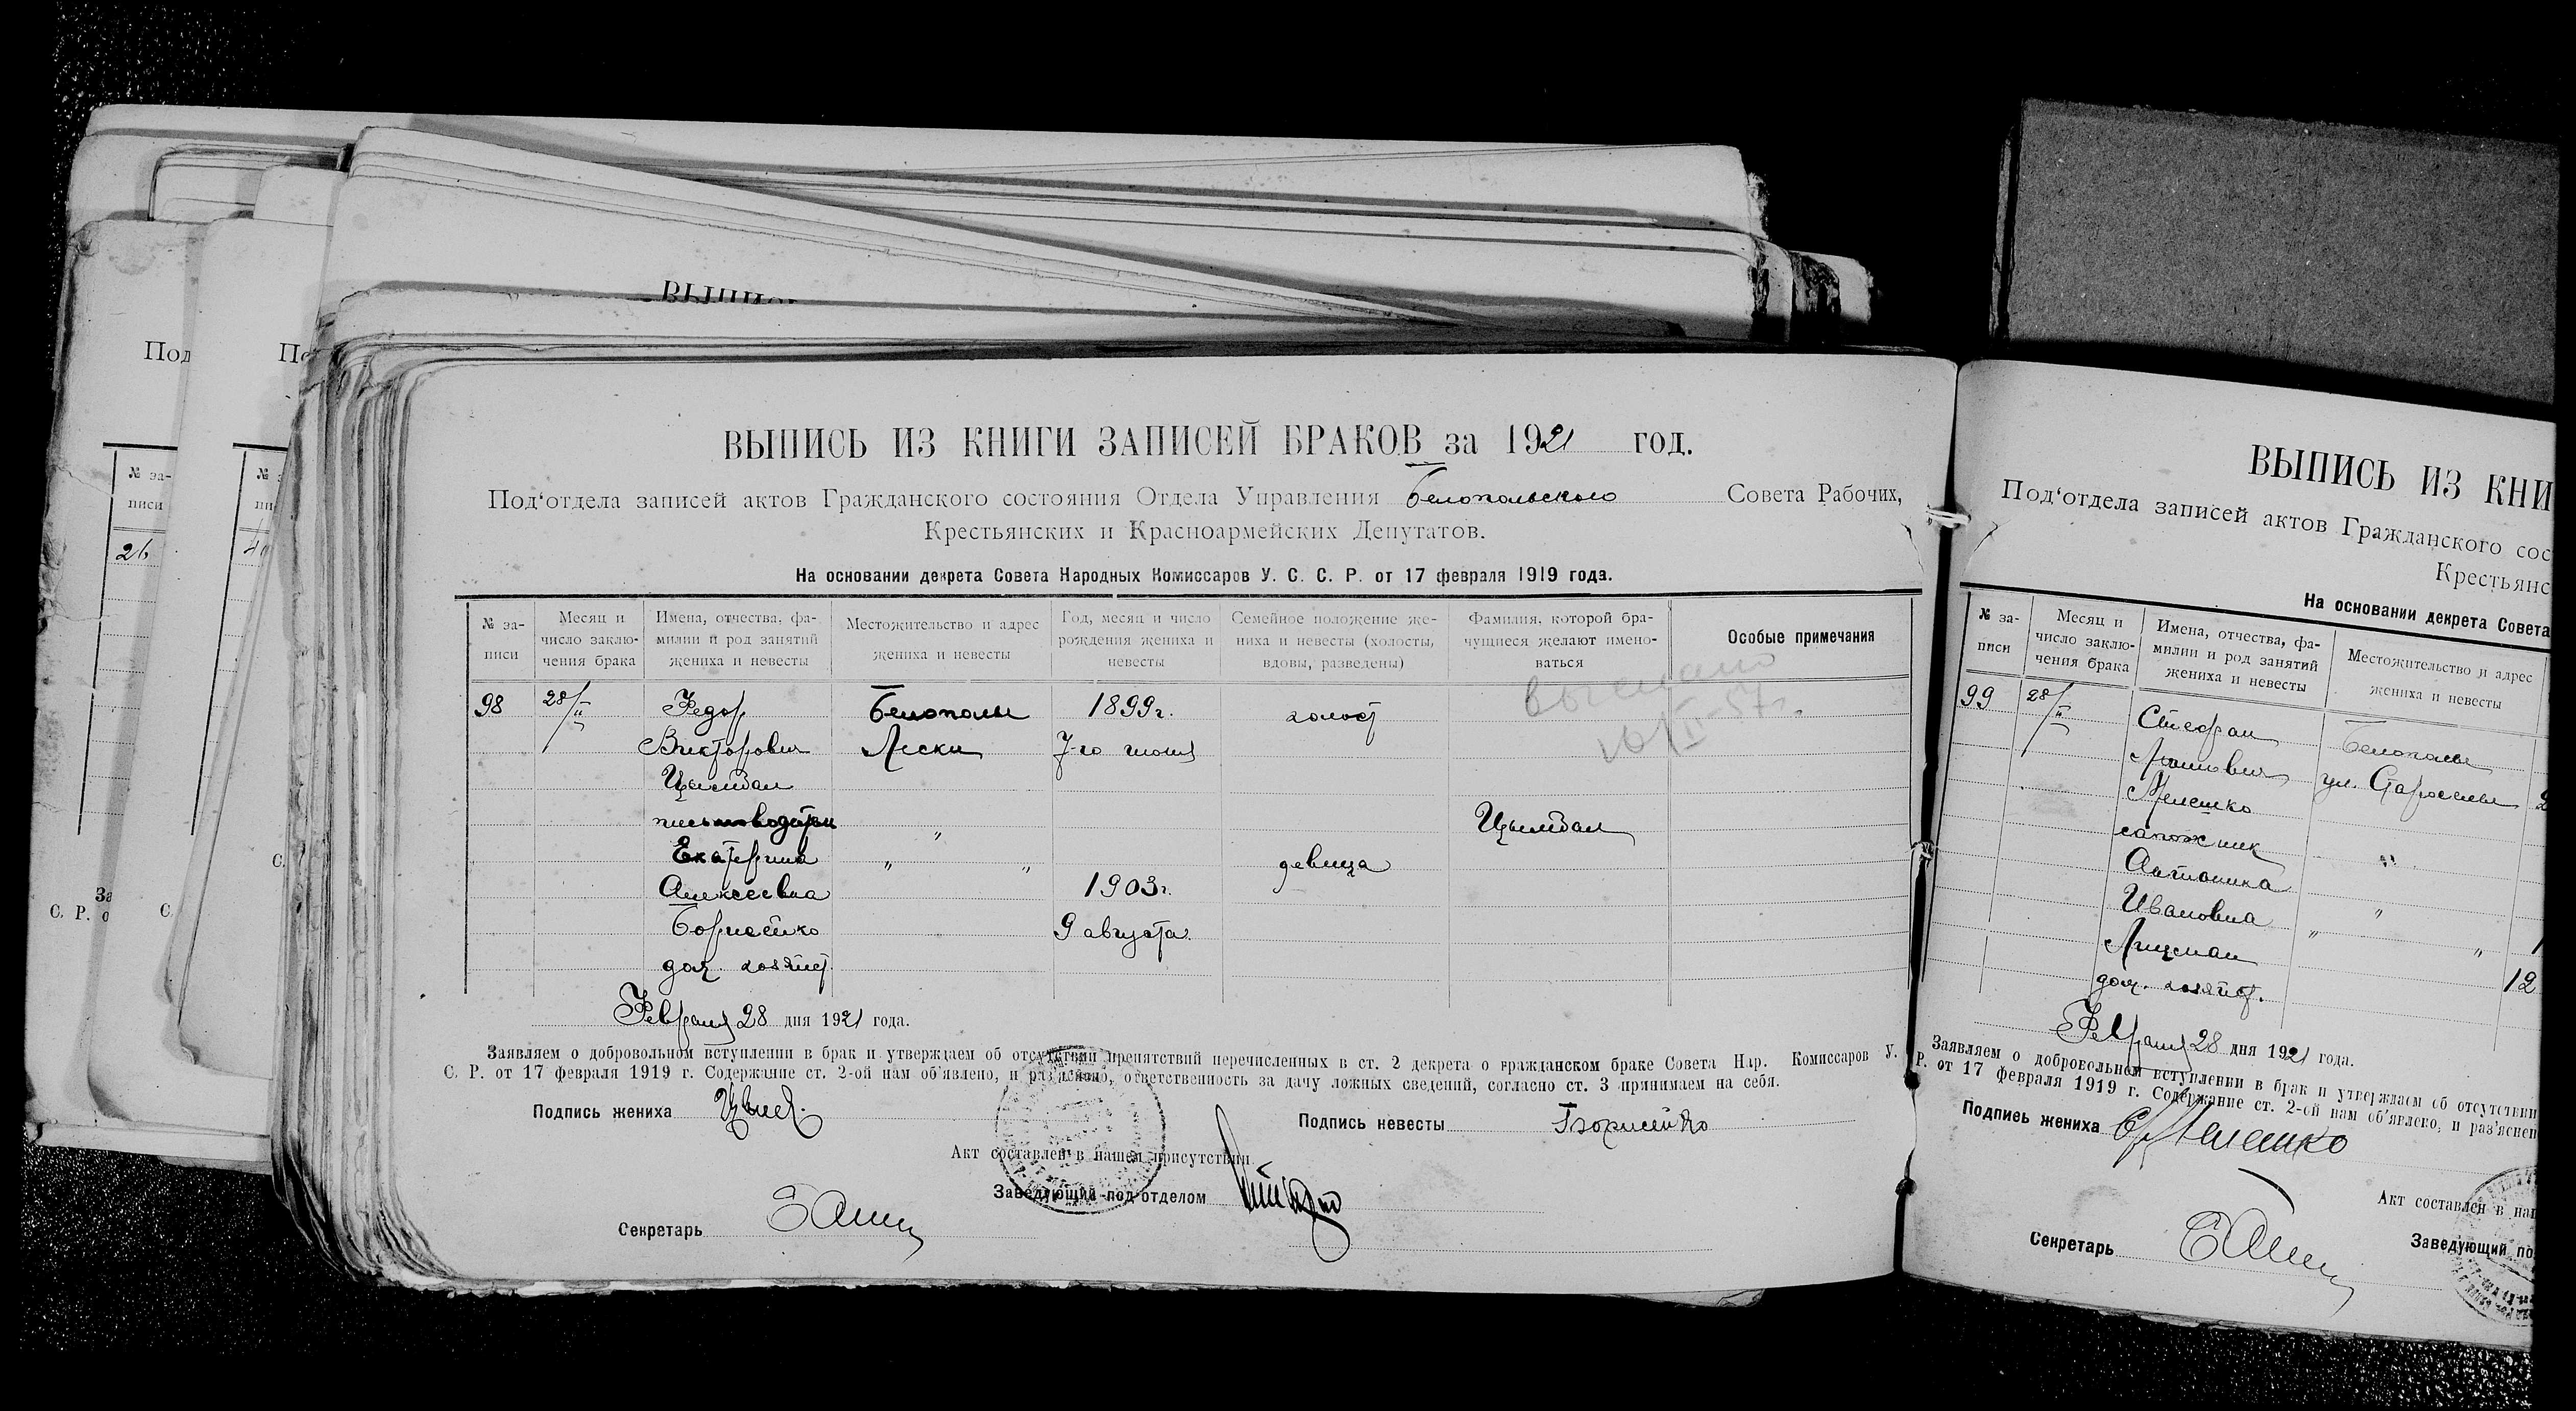 Под
№ за-
писи
26
За
С. Р. о
По
№ з
пи
40
С.
С
ВЫПИСЬ ИЗ КНИГИ ЗАПИСЕЙ БРАКОВ за 1921 год.
Под‘отдела записей актов Гражданского состояния Отдела Управления Белопольского Совета Рабочих,
Крестьянских и Красноармейских Депутатов.
На основании декрета Совета Народных Комиссаров У. С. С. Р. от 17 февраля 1919 года.
№ за-
писи
Месяц и
число заклю-
чения брака
Имена, отчества, фа-
милии и род занятий
жениха и невесты
Местожительство и адрес
жениха и невесты
Год, месяц и число
рождения жениха и
невесты
Семейное положение же-
ниха и невесты (холосты,
вдовы, разведены)
Фамилия, которой бра-
чущиеся желают имено-
ваться
Особые примечания
98 28/II Федор Белополье 1899 г. холост
Викторович Лески 7-го июня
Цымбал
письмоводитель " Цымбал
Екатерина " " девица
Алексеевна 1903 г.
Борисейко 9 августа
дом. хозяйст.
Февраля 28 дня 1921 года.
Заявляем о добровольном вступлении в брак и утверждаем об отсутствии препятствий перечисленных в ст. 2 декрета о гражданском браке Совета Нар. Комиссаров У.
С. Р. от 17 февраля 1919 г. Содержание ст. 2-ой нам об‘явлено, и раз‘яснено, ответственность за дачу ложных сведений, согласно ст. 3 принимаем на себя.
Подпись жениха
Подпись невесты Борисейко
Акт составлен в нашем присутствии
Заведующий под‘отделом
Секретарь
ВЫПИСЬ ИЗ КНИ
Под‘отдела записей актов Гражданского сос
Крестьянс
На основании декрета Совета
№ за-
писи
Месяц и
число заклю-
чения брака
Имена, отчества, фа-
милии и род занятий
жениха и невесты
Местожительство и адрес
жениха и невесты
99 28/II Стефан Белополье
ул. Староселье 2
Мелешко
сапожник "
Антонина
Ивановна "
" " 1
дом. хозяйст. 12
Февраля 28 дня 1921 года.
Заявляем о добровольном вступлении в брак и утверждаем об отсутствии
Р. от 17 февраля 1919 г. Содержание ст. 2-ой нам об‘явлено, и раз‘яснен
Подпись жениха Мелешко
Акт составлен в наш
Заведующий по
Секретарь